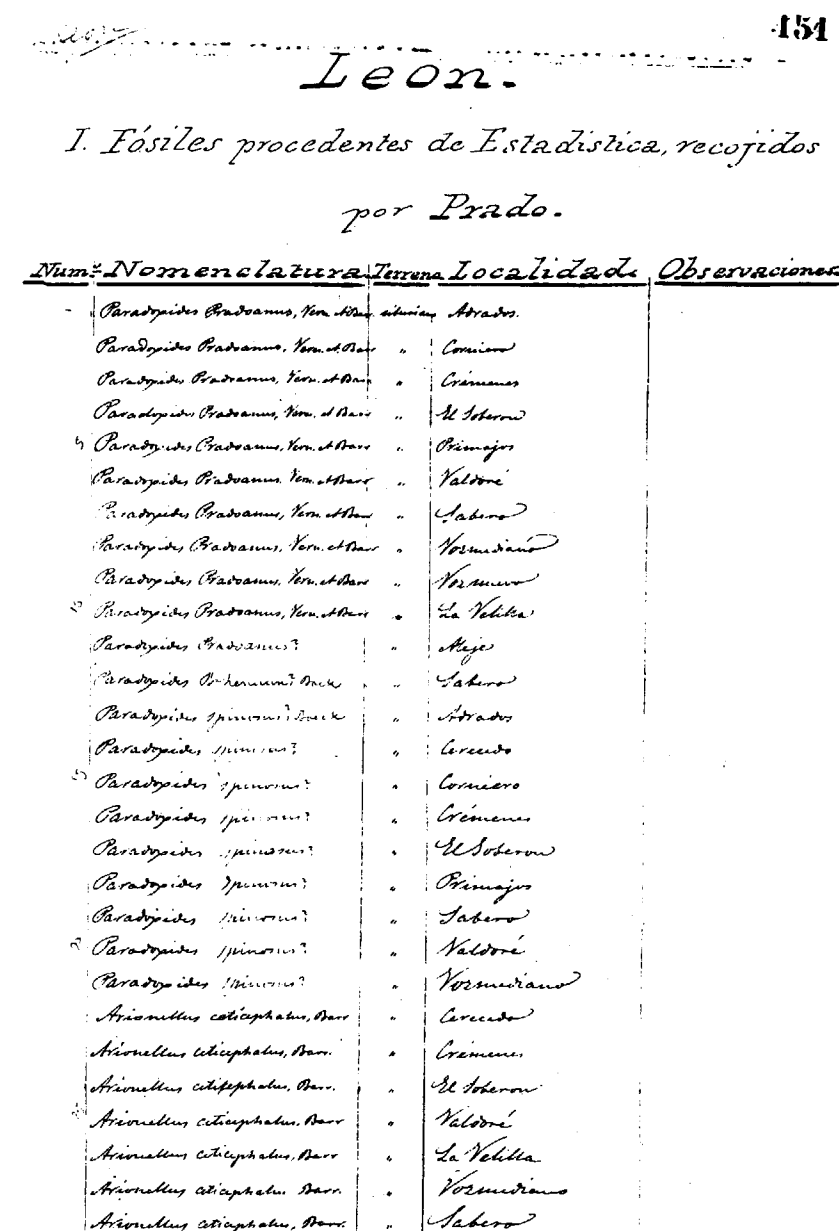 151
Leon.
I. Fósiles procedentes de Estadistica, recojidos
por Prado.
Numº Nomenclatura Terreno Localidad Observaciones
Paradoxides Pradoanus, Vern. et Barr. siluriano Adrados.
Paradoxides Pradoanus, Vern. et Barr " Corniero
Paradoxides Pradoanus, Vern. et Barr " Crémenes
Paradoxides Pradoanus, Vern. et Barr " El Soberon
5 Paradoxides Pradoanus, Vern. et Barr " Primajos
Paradoxides Pradoanus, Vern. et Barr " Valdoré
Paradoxides Pradoanus, Vern. et Barr " Sabero
Paradoxides Pradoanus, Vern. et Barr " Vozmediano
Paradoxides Pradoanus, Vern. et Barr "
10 Paradoxides Pradoanus, Vern. et Barr " La Velilla
Paradoxides Pradoanus? " Aleje
Paradoxides Bohemicus? Boeck " Sabero
Paradoxides spinosus? Boeck " Adrados
Paradoxides spinosus? " Cerecedo
15 Paradoxides spinosus? " Corniero
Paradoxides spinosus? " Crémenes
Paradoxides spinosus? " El Soberon
Paradoxides spinosus? " Primajos
Paradoxides spinosus? " Sabero
20 Paradoxides spinosus? " Valdoré
Paradoxides spinosus? " Vozmediano
Arionellus ceticephalus, Barr " Cerecedo
Arionellus ceticephalus, Barr. " Crémenes
Arionellus ceticephalus, Barr. " El Soberon
25 Arionellus ceticephalus, Barr " Valdoré
Arionellus ceticephalus, Barr " La Velilla
Arionellus ceticephalus Barr. " Vozmediano
Arionellus ceticephalus, Barr. " Sabero